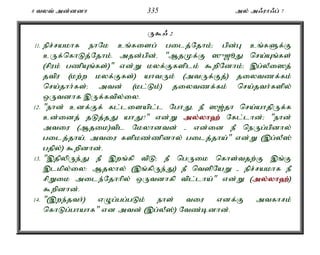 8 வலவ் அன்னனா 335 அல் அஃராஃப் 7
ருகூஃ 2
11. நிச்சயமாக நாமே உங்களைப் படைத்தோம்; பின்பு உங்களுக்கு
உருக்கொடுத்தோம். அதன்பின், "ஆதமுக்கு ஸுஜூது செய்யுங்கள்
(சிரம் பணியுங்கள்)" என்று மலக்குகளிடம் கூறினோம்; இப்லீஸைத்
தவிர (மற்ற மலக்குகள்) யாவரும் (அவருக்குத்) தலைவணக்கம்
செய்தார்கள்; அவன் (மட்டும்) தலைவணக்கம் செய்தவர்களில்
ஒருவனாக இருக்கவில்லை.
12. "நான் உனக்குக் கட்டளையிட்ட போது, நீ ஸஜ்தா செய்யாதிருக்க
உன்னைத் தடுத்தது யாது?" என்று அல்லாஹ் கேட்டான்; "நான்
அவரை (ஆதமை)விட மேலானவன் - என்னை நீ நெருப்பினால்
படைத்தாய், அவரை களிமண்ணினால் படைத்தாய்" என்று (இப்லீஸ்
பதில்) கூறினான்.
13. "இதிலிருந்து நீ இறங்கி விடு; நீ பெருமை கொள்வதற்கு இங்கு
இடமில்லை; ஆதலால் (இங்கிருந்து) நீ வெளியேறு - நிச்சயமாக நீ
சிறுமை அடைந்தோரில் ஒருவனாகி விட்டாய்" என்று (அல்லாஹ்)
கூறினான்.
14. "(இறந்தவர்) எழுப்பப்படும் நாள் வரை எனக்கு அவகாசம்
கொடுப்பாயாக" என அவன் (இப்லீஸ்) வேண்டினான்.